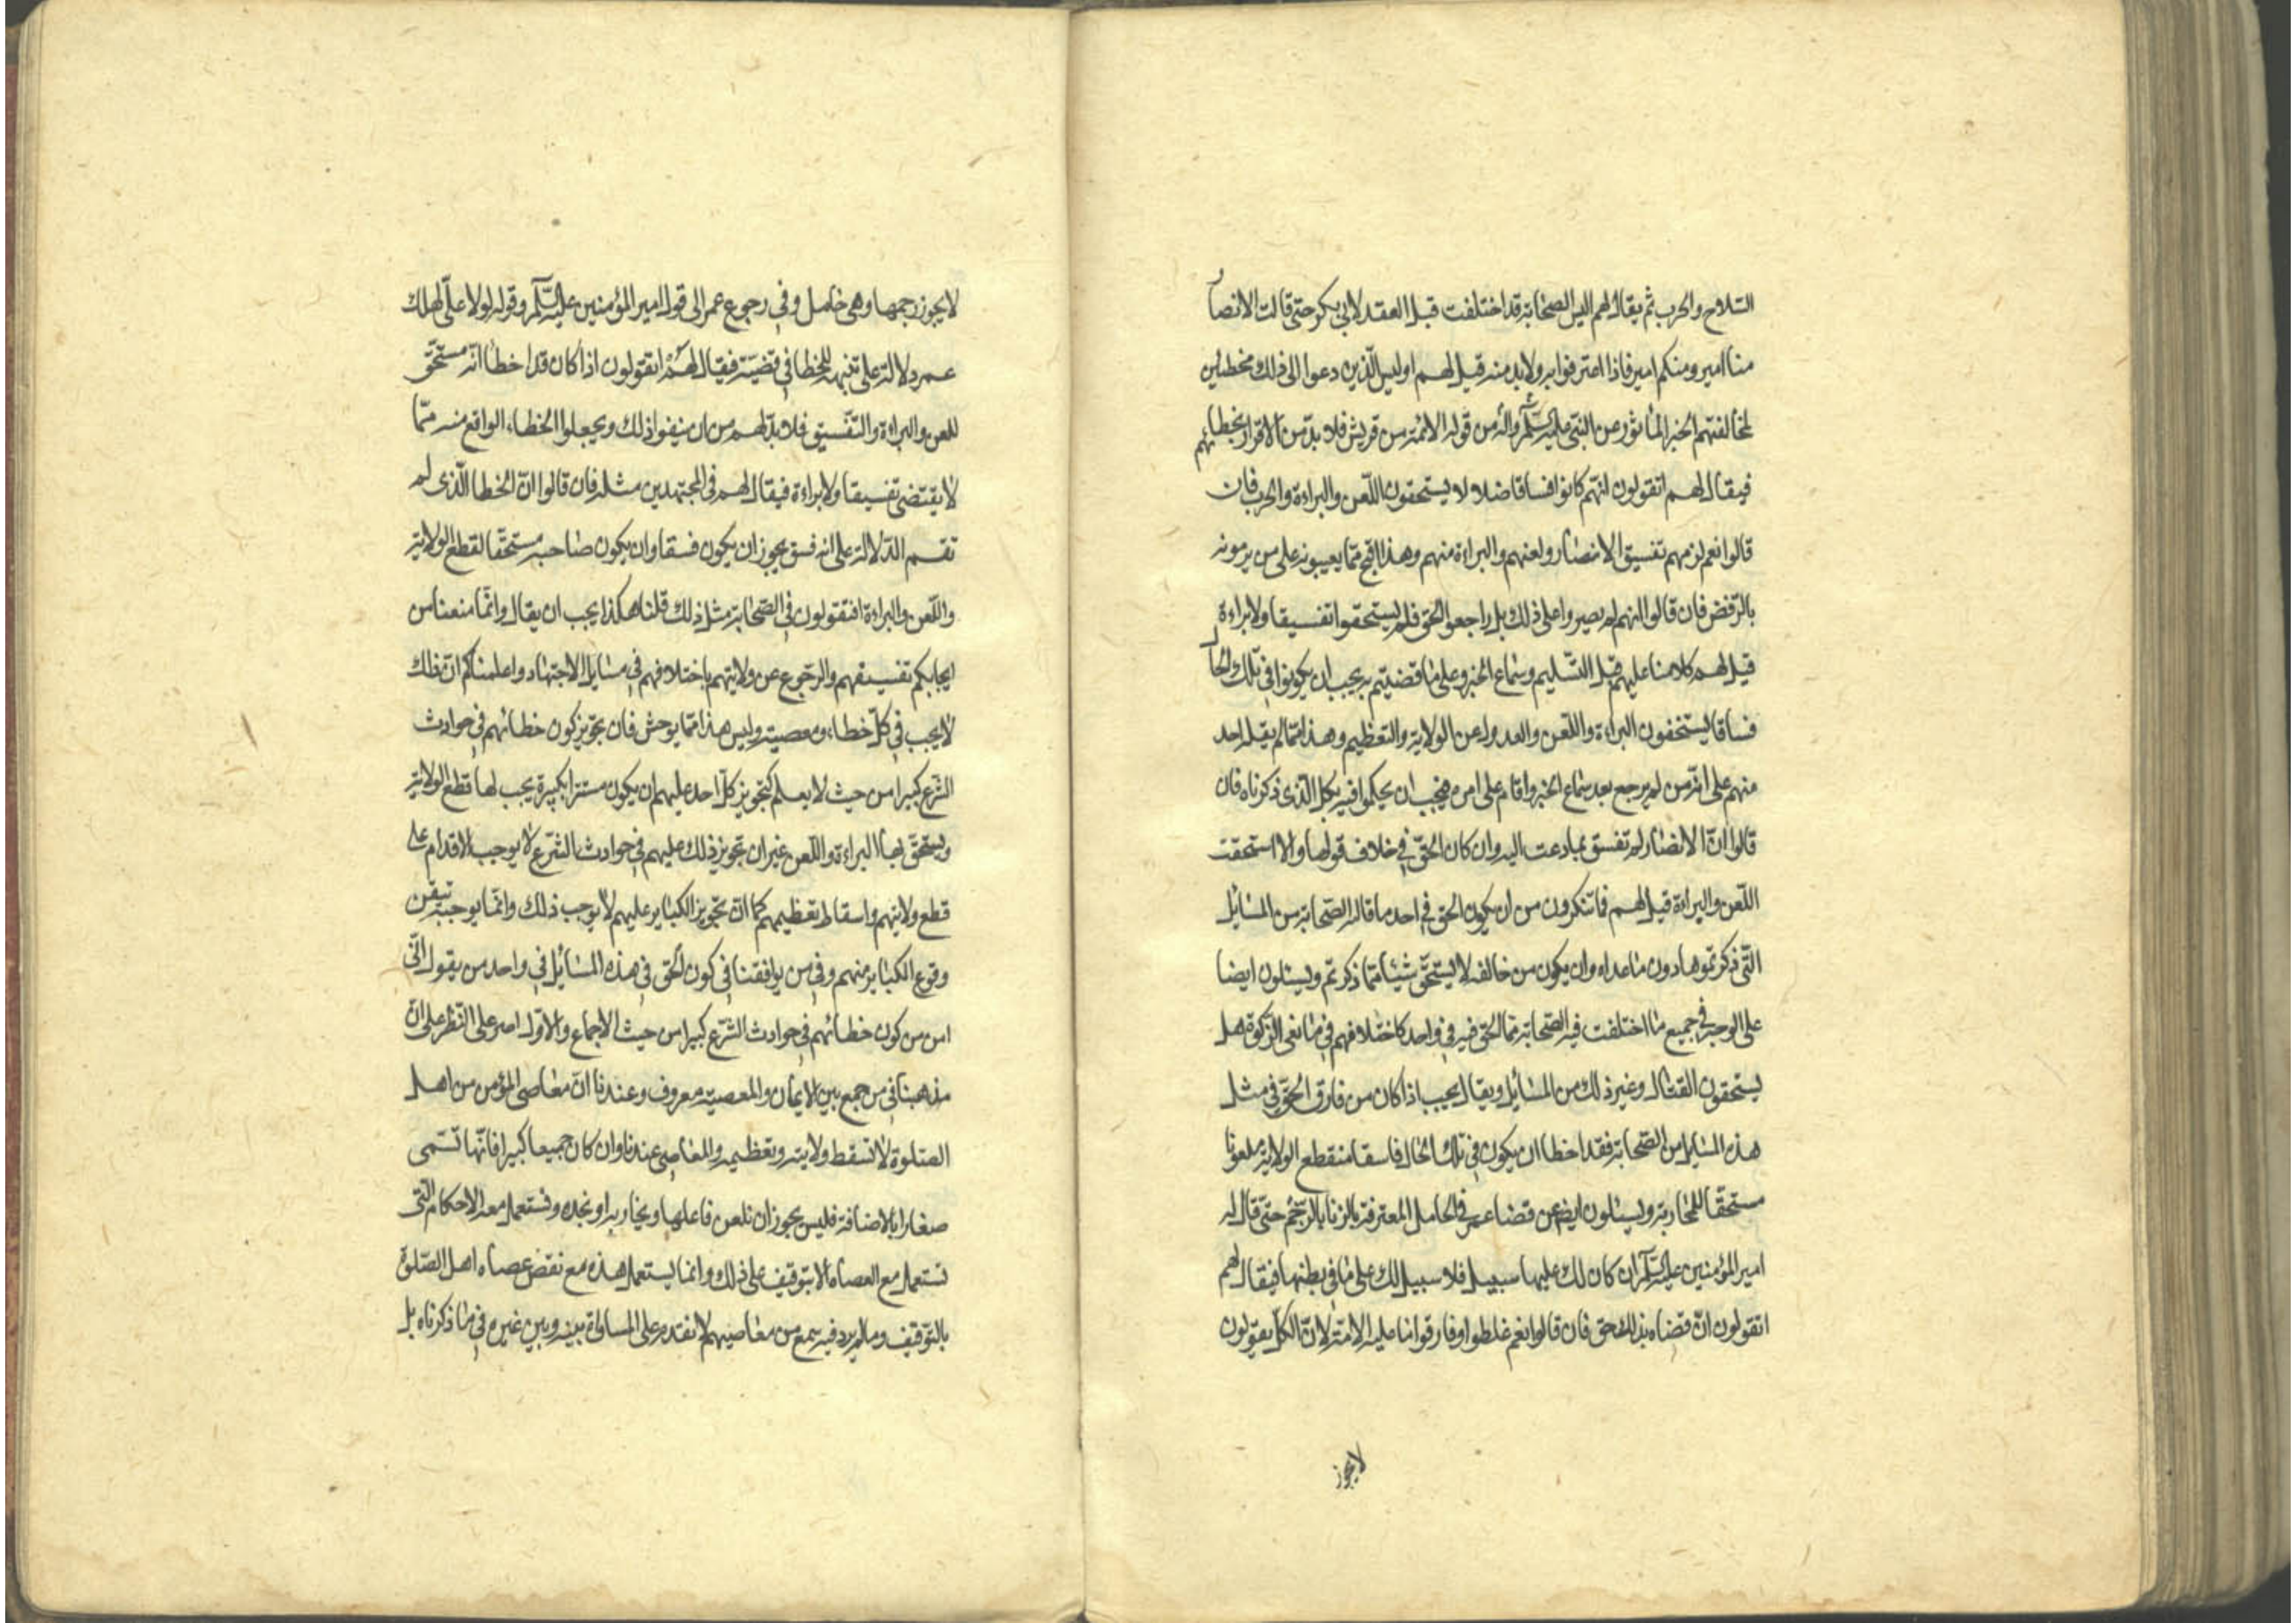 السلاح والحرب ثم يقال لهم اليس الصحابة قد اختلفت قبل العقد لابي بكر حتى قالت الانصار
منا امير ومنكم امير فاذا اعترفوا به ولا بد منه قيل لهم اوليس الذين دعوا الى ذلك مخطئين
لمخالفتهم الخبر المأثور عن النبي عليه السلام وآله من قوله الائمة من قريش فلا بد من الاقرار بخطائهم
فيقال لهم اتقولون انهم كانوا فساقا ضلالا يستحقون اللعن والبراءة والحرب فان
قالوا نعم لزمهم تفسيق الانصار ولعنهم والبراءة منهم وهذا اقبح مما يعيبونه على من يرمونه
بالرفض فان قالوا انهم لم يصروا على ذلك بل راجعوا الحق فلم يستحقوا تفسيقا ولا براءة
قيل لهم كلامنا عليهم قبل التسليم وسماع الخبر وعلى ما قضيتم به يجب ان يكونوا في تلك الحال
فساقا يستحقون البراءة واللعن والعدول عن الولاية والتعظيم وهذا مما لم يقله احد
منهم على انه من لم يرجع بعد سماع الخبر واقام على امره فيجب ان يحكموا فيه بكل الذي ذكرناه فان
قالوا ان الانصار لم تفسق بما دعت اليه وان كان الحق في خلاف قولها والا استحقت
اللعن والبراءة قيل لهم فما تنكرون من ان يكون الحق في احد ما قاله الصحابة من المسائل
التي ذكرتموها دون ما عداه وان يكون من خالفه لا يستحق شيئا مما ذكرتم ويسئلون ايضا
على الوجه في جميع ما اختلفت فيه الصحابة مما الحق فيه في واحد كاختلافهم في مانعي الزكوة هل
يستحقون القتال وغير ذلك من المسائل ويقال يجب اذا كان من فارق الحق في مثل
هذه المسايل من الصحابة فقد اخطا ان يكون في تلك الحال فاسقا منقطع الولاية ملعونا
مستحقا للمحاربة ويسئلون ايضا عن قضا عمر في الحامل المعترفة بالزنا بالرجم حتى قال له
امير المؤمنين عليه السلام ان كان لك عليها سبيل فلا سبيل لك على ما في بطنها فيقال لهم
اتقولون ان قضاه بذلك حق فان قالوا نعم غلطوا وفارقوا ما عليه الامة لان الكل يقولون
لا يجوز
لا يجوز رجمها وهي حامل وفي رجوع عمر الى قول امير المؤمنين عليه السلام وقوله لولا علي لهلك
عمر دلالة على تنبهه للخطا في قضيته فيقال لهم اتقولون اذا كان قد اخطا انه مستحق
للعن والبراءة والتفسيق فلا بد لهم من ان ينفوا ذلك ويجعلوا الخطاء الواقع منه مما
لا يقتضي تفسيقا ولا براءة فيقال لهم في المجتهدين مثله فان قالوا ان الخطا الذي لم
تقم الدلالة على انه فسق يجوز ان يكون فسقا وان يكون صاحبه مستحقا لقطع الولاية
واللعن والبراءة افتقولون في الصحابة مثل ذلك قلنا هكذا يجب ان يقال وانما منعنا من
ايجابكم تفسيقهم والرجوع عن ولايتهم باختلافهم في مسايل الاجتهاد واعلمناكم ان ذلك
لا يجب في كل خطاء ومعصية وليس هذا مما يوحش فان تجويز كون خطائهم في حوادث
الشرع كبيرا من حيث لا يعلم كتجويز كل احد عليهم ان يكون مستترا بكبيرة يجب لها قطع الولاية
ويستحق بها البراءة واللعن غير ان تجويز ذلك عليهم في حوادث الشرع لا يوجب الاقدام على
قطع ولايتهم واسقاط تعظيمهم كما ان تجويز الكباير عليهم لا يوجب ذلك وانما يوجبه تيقن
وقوع الكباير منهم وفي من يوافقنا في كون الحق في هذه المسائل في واحد من يقول انني
امن من كون خطائهم في حوادث الشرع كبيرا من حيث الاجماع والاول اصر على النظر على ان
مذهبنا في من جمع بين الايمان والمعصية معروف وعندنا ان معاصي المؤمن من اهل
الصلوة لا تسقط ولايته وتعظيمه والمعاصي عندنا وان كان جميعا كبيرا فانها تسمى
صغارا بالاضافة فليس يجوز ان نلعن فاعلها ويحاربه او نجده ونستعمل معه الاحكام التي
تستعمل مع العصاه الا بتوقيف على ذلك وانما يستعمل هذه مع نقض عصاه اهل الصلوة
بالتوقيف وما لم يرد فيه سمع من معاصيهم لا نقدم على المساواة بينه وبين غيره في ما ذكرناه بل